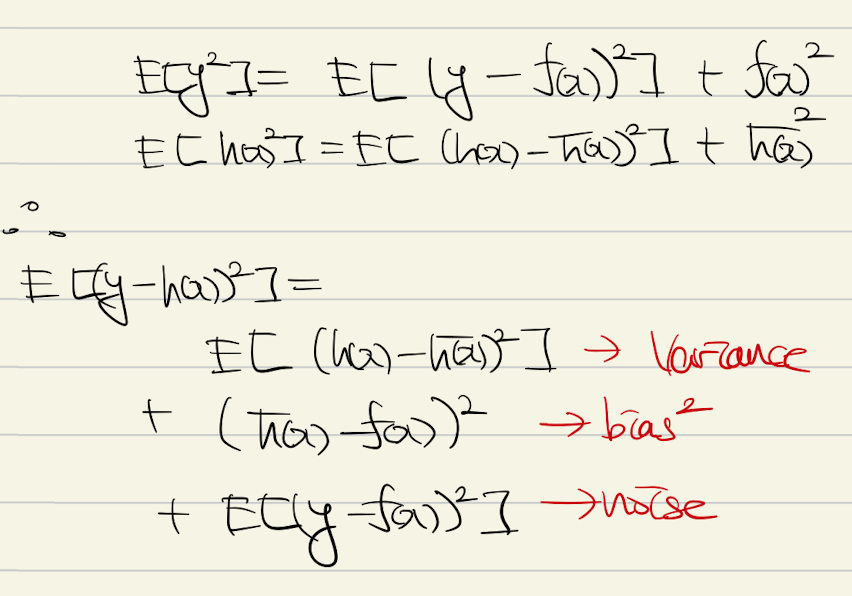 E[y²] = E[(y - f(x))²] + f(x)²
E[h(x)²] = E[(h(x) - h̄(x))²] + h̄(x)²
∴
E[(y - h(x))²] =
E[(h(x) - h̄(x))²] → Variance
+ (h̄(x) - f(x))² → bias²
+ E[(y - f(x))²] → noise